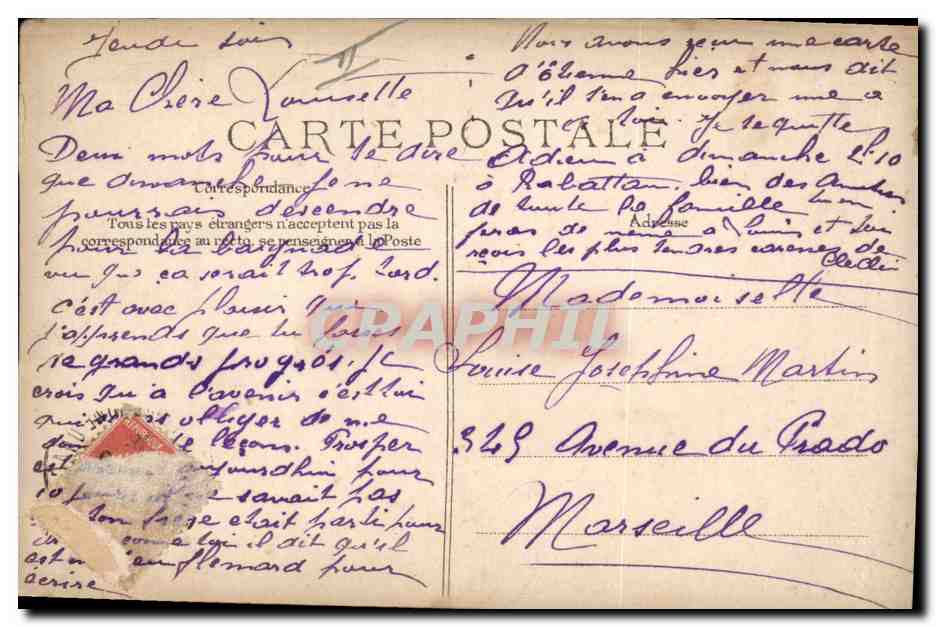 Jeudi soir
II
Ma Chère Louisette
CARTE POSTALE
Correspondance
Tous les pays étrangers n'acceptent pas la
correspondance au recto, se renseigner à la Poste
Adresse
Deux mots pour te dire
que dimanche je ne
pourrais descendre
pour la baignade
vu que ça serait trop tard.
c'est avec plaisir que
j'apprends que tu fasses
de grands progrès, je
crois qu'à l'avenir c'est toi
qui obliger de me
leçons. Prosper
aujourdhui pour
10 jours savait pas
ton frère était parti pour
comme toi il dit qu'il
est flemard pour
écrire
Nous avons reçu une carte
d'Etienne hier et nous dit
qu'il t'en a envoyer une à
toi. Je te quitte
Adieu à dimanche 2h10
à Rabattau, bien des
de toute la famille
de même à et toi
reçois les plus tendres caresses de
Mademoiselle
Louise Josephine Martin
545 Avenue du Prado
Marseille
CPAPHIL